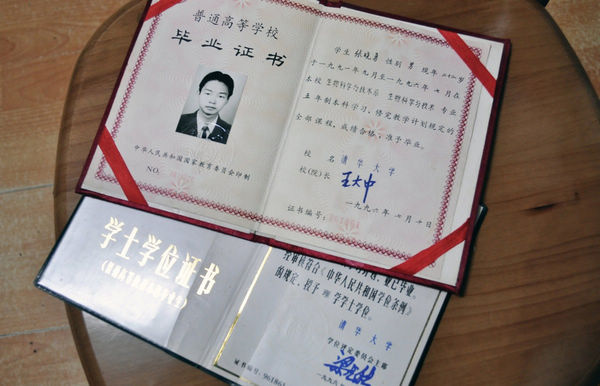 普通高等学校
毕业证书
中华人民共和国国家教育委员会印制
NO.
学生 张晓勇 性别 男 现年 二十三 岁
于一九九一年九月至一九九六年七月在
本校 生物科学与技术系 生物科学与技术 专业
五年制本科学习，修完教学计划规定的
全部课程，成绩合格，准予毕业。
校名 清华大学
校(院)长 王大中
一九九六年七月十日
证书编号:
学士学位证书
业已毕业。
经审核符合《中华人民共和国学位条例》
的规定，授予 理 学学士学位。
清华大学
学位评定委员会主席
证书编号: